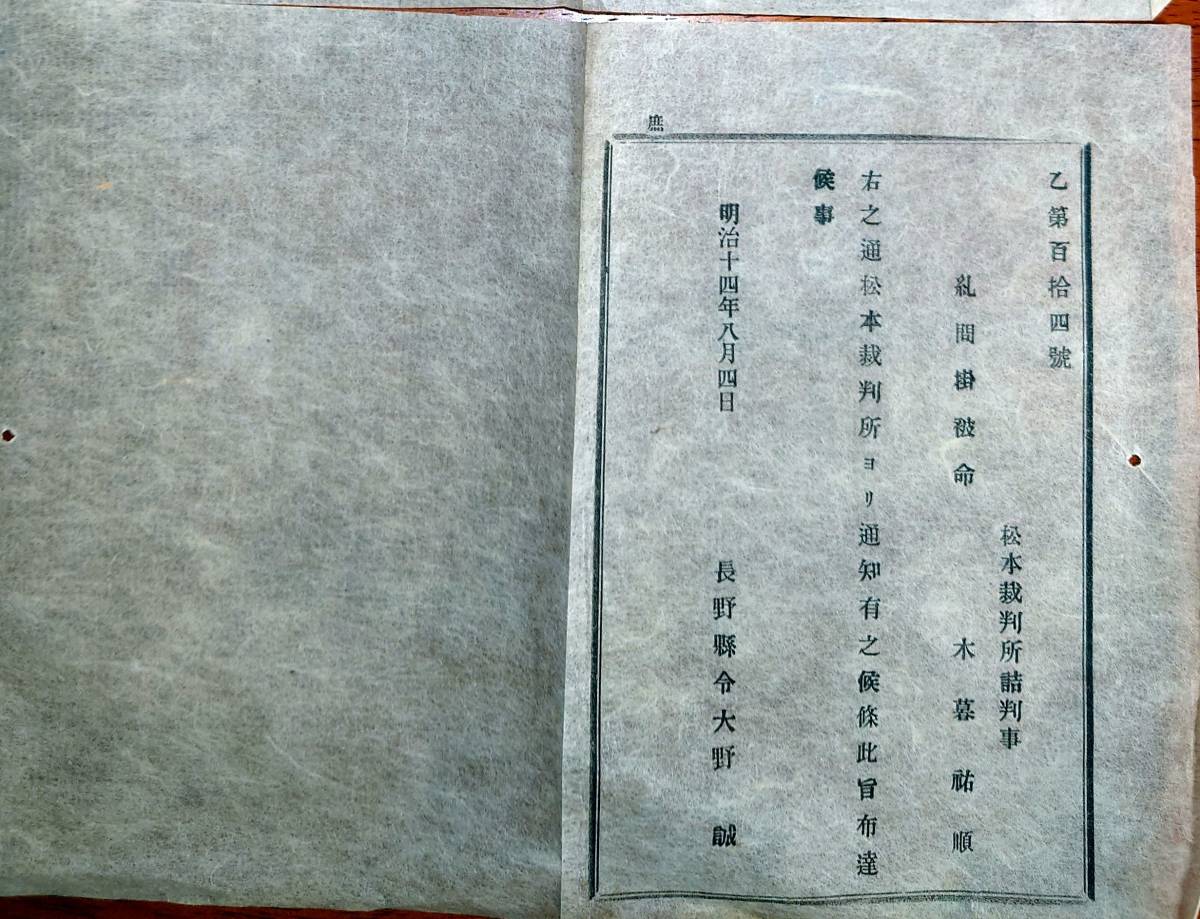 乙第百拾四號
松本裁判所詰判事
糺問掛被命　木暮祐順
右之通松本裁判所ヨリ通知有之候條此旨布達
候事
明治十四年八月四日
長野縣令大野　誠
庶